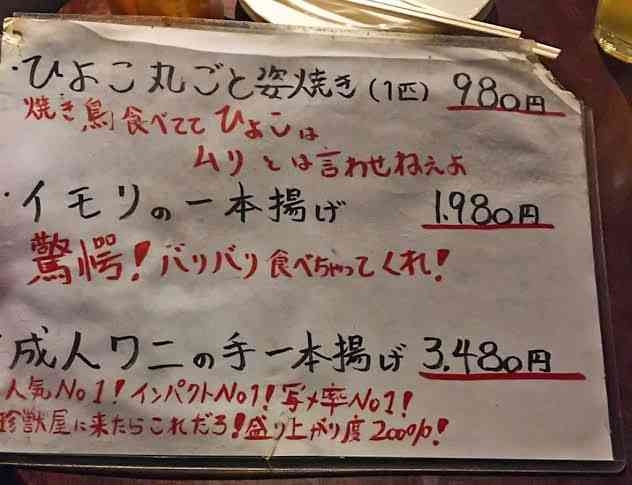 ・ひよこ丸ごと姿焼き(1匹) 980円
焼き鳥食べてて ひよこは
ムリとは言わせねぇよ
・イモリの一本揚げ 1,980円
驚愕!バリバリ食べちゃってくれ!
成人ワニの手一本揚げ 3,480円
人気No1!インパクトNo1!写メ率No1!
珍獣屋に来たらこれだろ!盛り上がり度2000%!